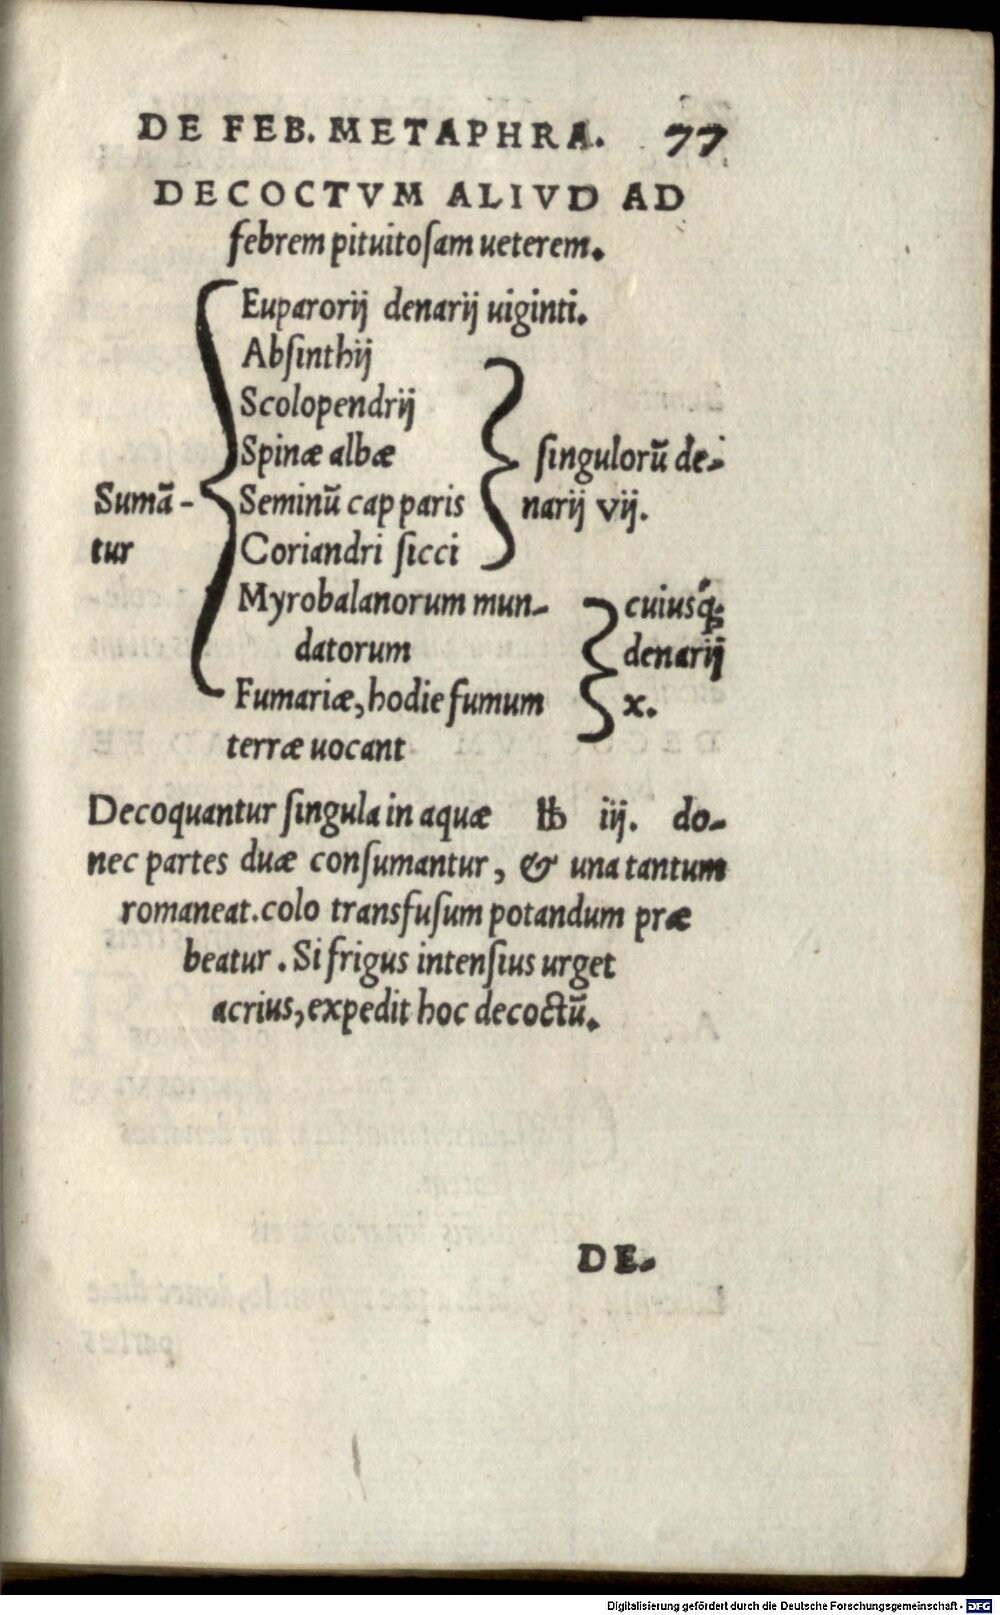 DE FEB. METAPHRA. 77
DECOCTVM ALIVD AD
febrem pituitoſam ueterem.
Euparorij denarij uiginti.
Abſinthij
Scolopendrij
Spinæ albæ
ſingulorū de-
Sumā-
Seminū capparis
narij vij.
tur
Coriandri ſicci
Myrobalanorum mun-
cuiusq́;
datorum
denarij
Fumariæ, hodie fumum
x.
terræ uocant
Decoquantur ſingula in aquæ ℔ iij. do-
nec partes duæ conſumantur, & una tantum
romaneat. colo transfuſum potandum præ
beatur. Si frigus intenſius urget
acrius, expedit hoc decoctū.
DE-
Digitalisierung gefördert durch die Deutsche Forschungsgemeinschaft - DFG